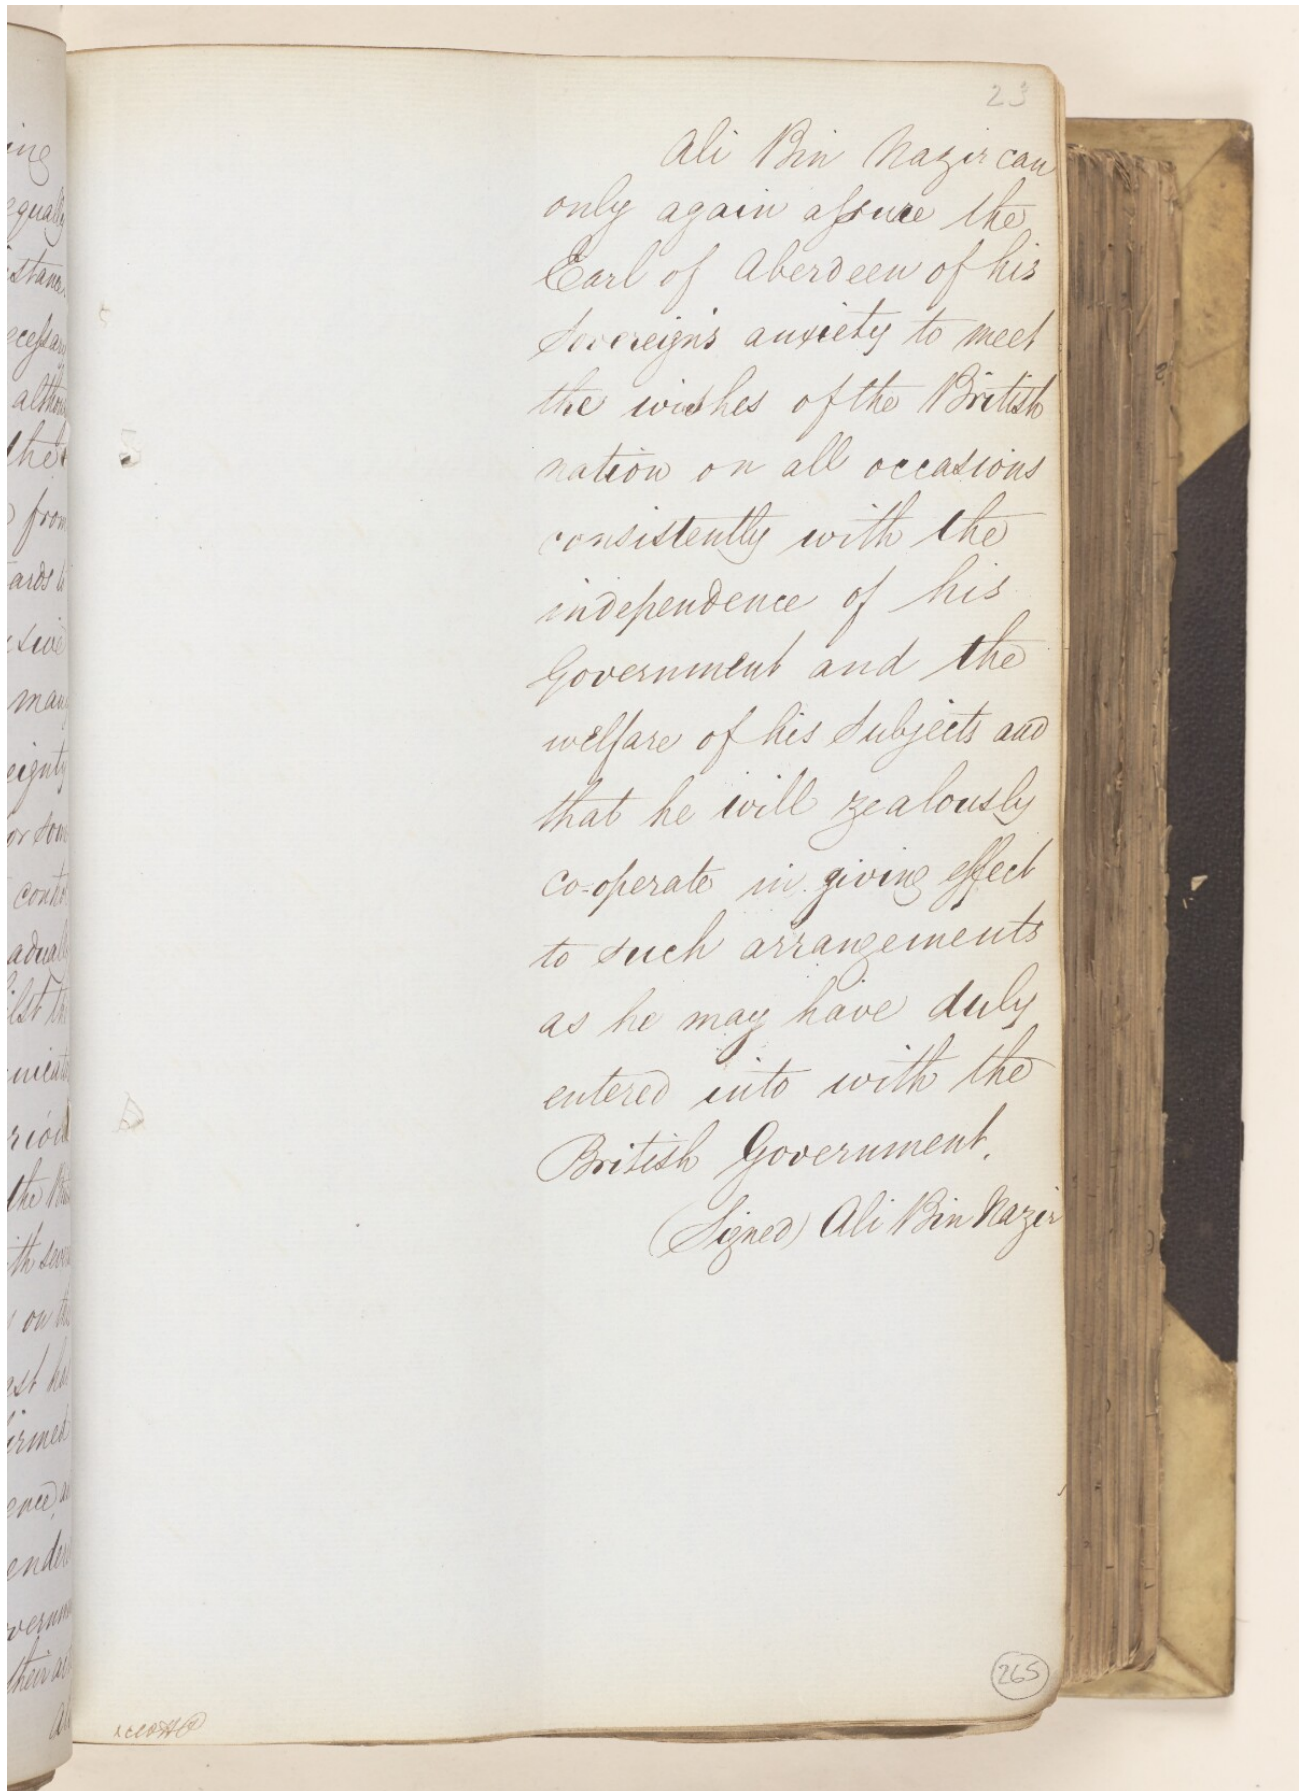 23
Ali Bin Nazir can
only again assure the
Earl of Aberdeen of his
Sovereign's anxiety to meet
the wishes of the British
nation on all occasions
consistently with the
independence of his
Government and the
welfare of his Subjects and
that he will zealously
co-operate in giving effect
to such arrangements
as he may have duly
entered into with the
British Government.
(Signed) Ali Bin Nazir
265